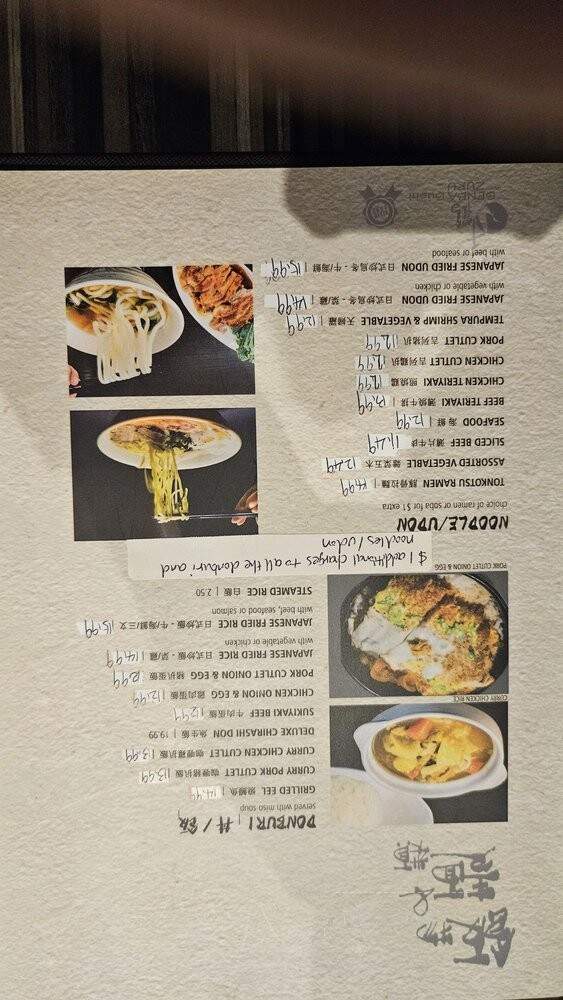 DONBURI 丼/飯
served with miso soup
GRILLED EEL 燒鰻魚 | 14.99
CURRY PORK CUTLET 咖喱豬扒飯 | 13.99
CURRY CHICKEN CUTLET 咖喱雞扒飯 | 13.99
DELUXE CHIRASHI DON 魚生飯 | 19.99
SUKIYAKI BEEF 牛肉蛋飯 | 12.99
CHICKEN ONION & EGG 雞肉蛋飯 | 12.99
PORK CUTLET ONION & EGG 豬扒蛋飯 | 12.99
JAPANESE FRIED RICE 日式炒飯 - 菜/雞 | 14.99
with vegetable or chicken
JAPANESE FRIED RICE 日式炒飯 - 牛/海鮮/三文 | 15.99
with beef, seafood or salmon
STEAMED RICE 白飯 | 2.50
CURRY CHICKEN RICE
PORK CUTLET ONION & EGG
$1 additional charges to all the donburi and
noodles/udon
NOODLE/UDON
choice of ramen or soba for $1 extra
TONKOTSU RAMEN 豚骨拉麵 | 14.99
ASSORTED VEGETABLE 雜菜烏冬 | 12.49
SLICED BEEF 薄片牛肉 | 11.49
SEAFOOD 海鮮 | 12.99
BEEF TERIYAKI 燒牛排 | 13.99
CHICKEN TERIYAKI 照燒雞 | 12.99
CHICKEN CUTLET 吉列雞扒 | 12.99
PORK CUTLET 吉列豬扒 | 12.99
TEMPURA SHRIMP & VEGETABLE 天婦羅 | 12.99
JAPANESE FRIED UDON 日式炒烏冬 - 菜/雞 | 14.99
with vegetable or chicken
JAPANESE FRIED UDON 日式炒烏冬 - 牛/海鮮 | 15.99
with beef or seafood